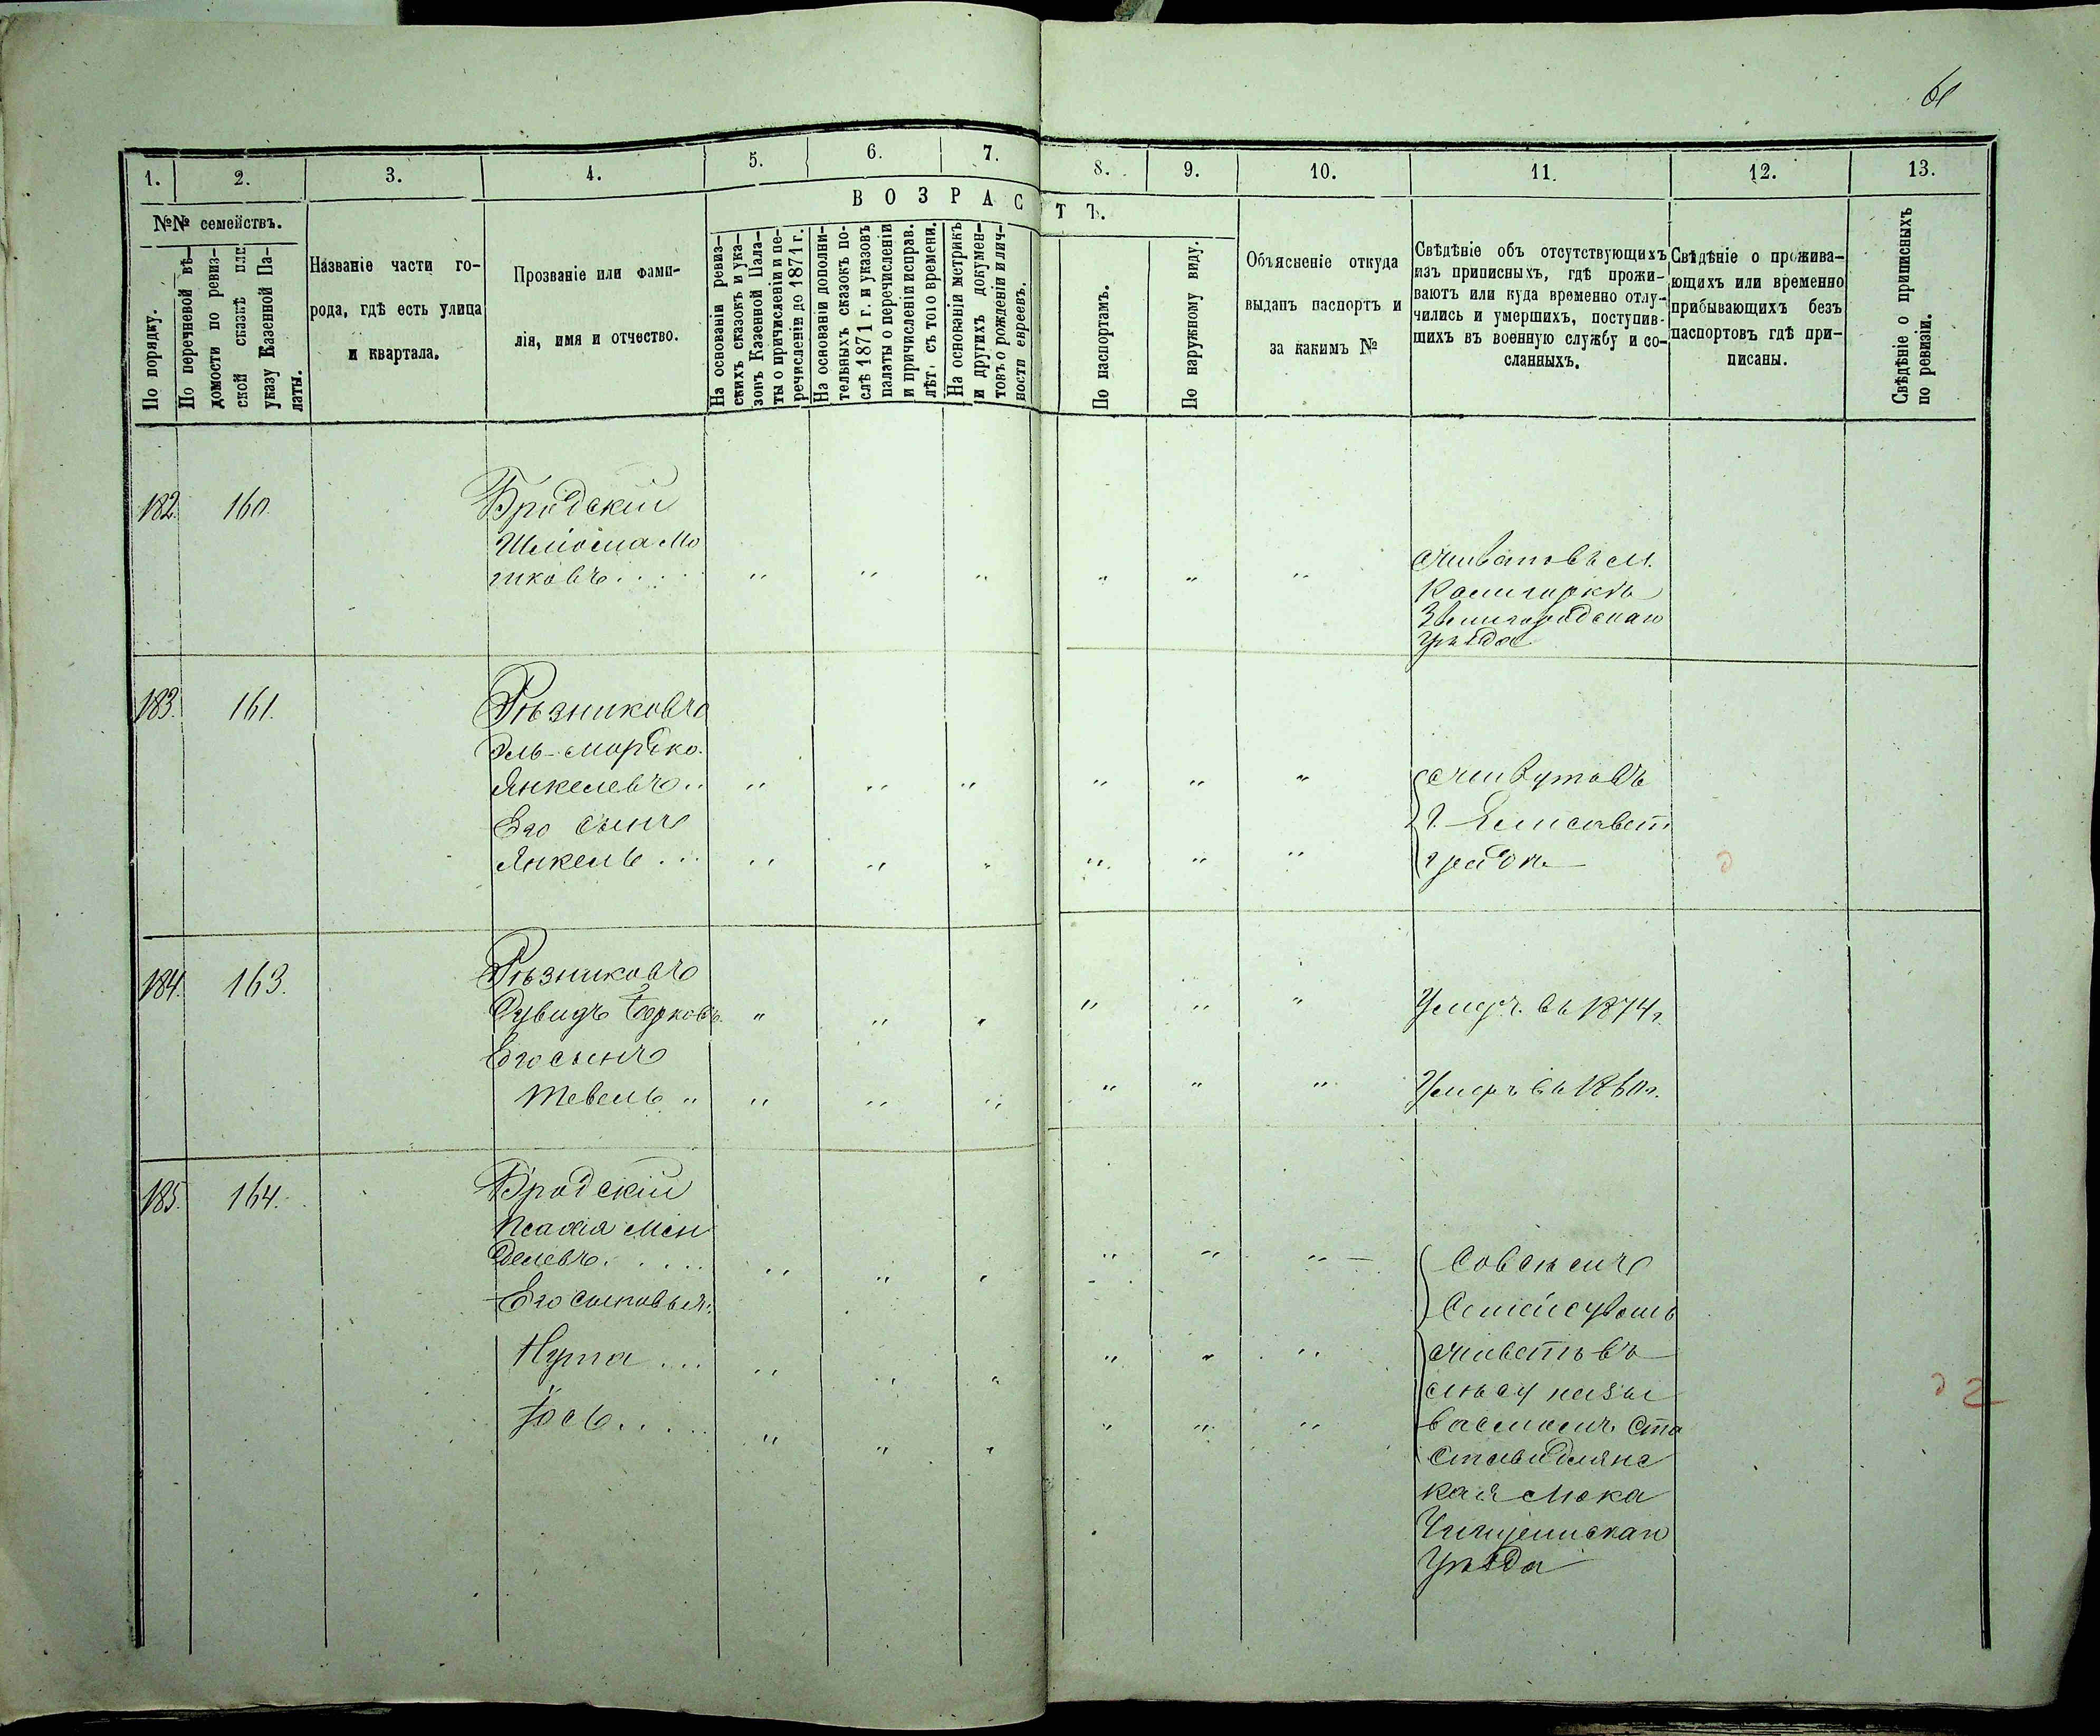 61
1. 2. 3. 4. 5. 6. 7. 8. 9. 10. 11. 12. 13.
№№ семействъ.
По порядку.
По перечневой вѣ-
домости по ревиз-
ской сказкѣ или
указу Казенной Па-
латы.
Названіе части го-
рода, гдѣ есть улица
и квартала.
Прозваніе или фами-
лія, имя и отчество.
ВОЗРАСТЪ.
На основаніи ревиз-
скихъ сказокъ и ука-
зовъ Казенной Пала-
ты о причисленіи и пе-
речисленіи до 1871 г.
На основаніи дополни-
тельныхъ сказокъ по-
слѣ 1871 г. и указовъ
палаты о перечисленіи
и причисленіи исправ.
лѣт. съ того времени.
На основаніи метрикъ
и другихъ докумен-
товъ о рожденіи и лич-
ности евреевъ.
По паспортамъ.
По наружному виду.
Объясненіе откуда
выданъ паспортъ и
за какимъ №
Свѣдѣніе объ отсутствующихъ
изъ приписныхъ, гдѣ прожи-
ваютъ или куда временно отлу-
чились и умершихъ, поступив-
шихъ въ военную службу и со-
сланныхъ.
Свѣдѣніе о прожива-
ющихъ или временно
прибывающихъ безъ
паспортовъ гдѣ при-
писаны.
Свѣдѣніе о приписныхъ
по ревизіи.
182. 160. Бродскій
Шліома Мо
шковъ..... " " " " " "
живетъ въ м.
Звенигородскаго
уѣзда
183. 161. Рѣзниковъ
Эль-Мордко
Янкелевъ.. " " " " " "
Его сынъ
Янкель... " " " " " "
живутъ въ
г. Елисавет
градѣ
184. 163. Рѣзниковъ
Дувидъ Берковъ. " " " " " " Умеръ въ 1874 г.
Его сынъ
Тевель " " " " " " " Умеръ въ 1860 г.
185. 164. Бродскій
Исакія Мен
делевъ..... " " " " " "
Его сыновья:
Нута... " " " " " "
Іось.... " " " " " "
Со всѣмъ
Семействомъ
живетъ въ
казы
ваемомъ Ста
Ставидлянс
кая
Чигиринскаго
Уѣзда